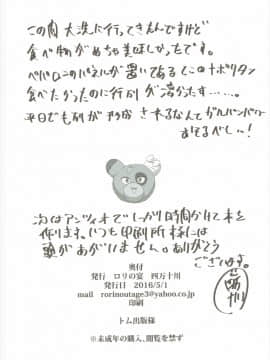 この間大洗に行ってきたんですけど
食べ物がめちゃ美味しかったです。
ペパロニのパネルが置いてあるところのナポリタン
食べたかったのに行列が凄かったす……。
平日でも列が形成されるなんてガルパンパワー
すさまじい…!!
次はアンツィオでしっかり時間かけて本を
作ります。いつも印刷所様には
頭があがりません。ありがとう
ございます。
四万十川
奥付
発行 ロリの宴 四万十川
発行日 2016/5/1
mail rorinoutage3@yahoo.co.jp
印刷
トム出版様
※未成年の購入、閲覧を禁ず